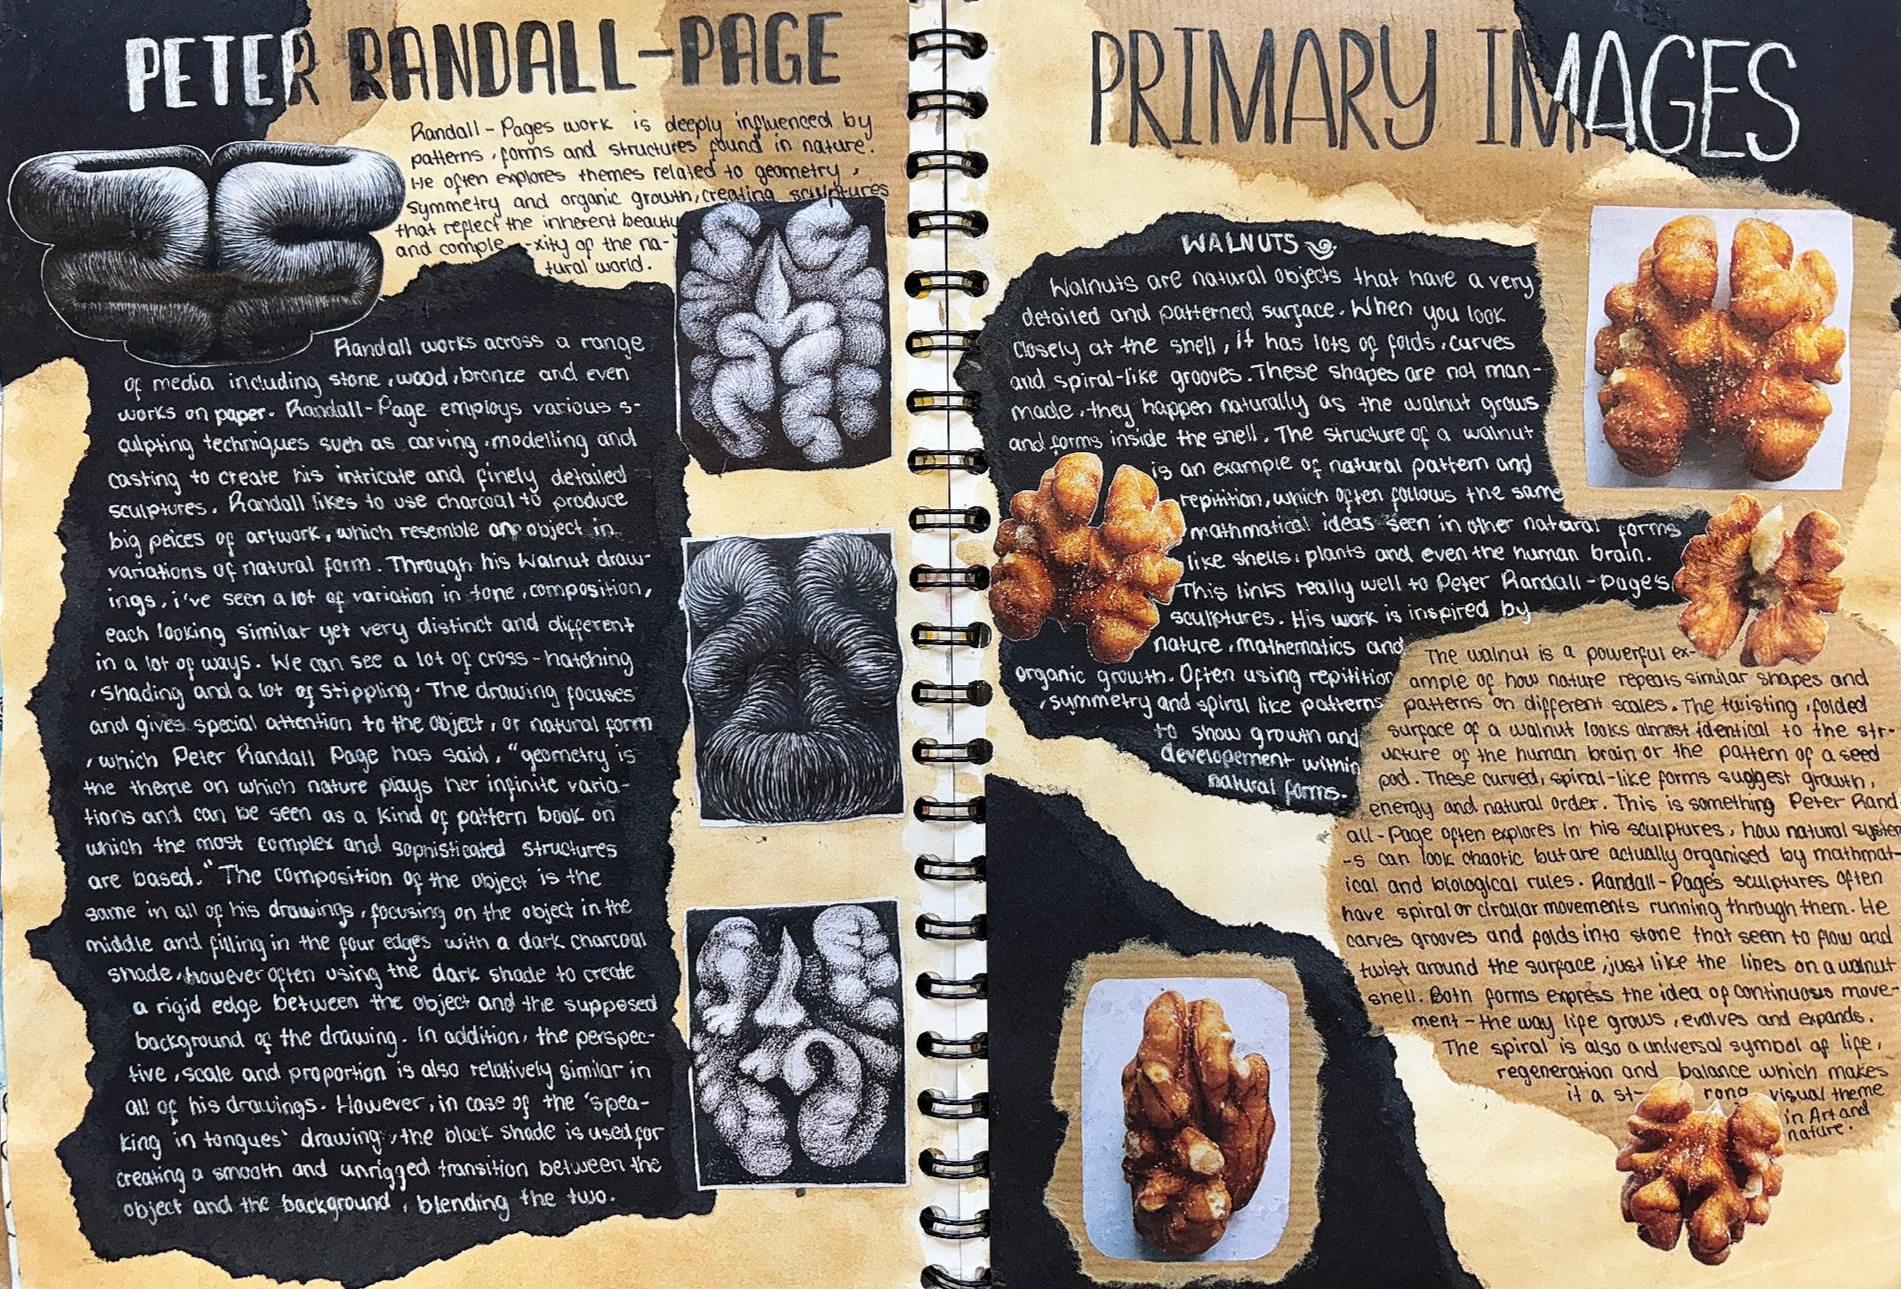 PETER RANDALL-PAGE
Randall-Pages work is deeply influenced by
patterns, forms and structures found in nature.
He often explores themes related to geometry,
symmetry and organic growth, creating sculptures
that reflect the inherent beauty
and comple -xity of the na-
tural world.
Randall works across a range
of media including stone, wood, bronze and even
works on paper. Randall-Page employs various s-
culpting techniques such as carving, modelling and
casting to create his intricate and finely detailed
sculptures. Randall likes to use charcoal to produce
big peices of artwork, which resemble any object in
variations of natural form. Through his Walnut draw-
ings, i've seen a lot of variation in tone, composition,
each looking similar yet very distinct and different
in a lot of ways. We can see a lot of cross-hatching
, shading and a lot of stippling. The drawing focuses
and gives special attention to the object, or natural form
, which Peter Randall Page has said, "geometry is
the theme on which nature plays her infinite varia-
tions and can be seen as a kind of pattern book on
which the most complex and sophisticated structures
are based." The composition of the object is the
same in all of his drawings, focusing on the object in the
middle and filling in the four edges with a dark charcoal
shade, however often using the dark shade to create
a rigid edge between the object and the supposed
background of the drawing. In addition, the perspec-
tive, scale and proportion is also relatively similar in
all of his drawings. However, in case of the 'spea-
king in tongues' drawing, the black shade is used for
creating a smooth and unrigged transition between the
object and the background, blending the two.
PRIMARY IMAGES
WALNUTS
Walnuts are natural objects that have a very
detailed and patterned surface. When you look
closely at the shell, it has lots of folds, curves
and spiral-like grooves. These shapes are not man-
made, they happen naturally as the walnut grows
and forms inside the shell. The structure of a walnut
is an example of natural pattern and
repitition, which often follows the same
mathmatical ideas seen in other natural forms
like shells, plants and even the human brain.
This links really well to Peter Randall-Page's
sculptures. His work is inspired by
nature, mathematics and
organic growth. Often using repitition
, symmetry and spiral like patterns
to show growth and
developement within
natural forms.
The walnut is a powerful ex-
ample of how nature repeats similar shapes and
patterns on different scales. The twisting, folded
surface of a walnut looks almost identical to the str-
ucture of the human brain or the pattern of a seed
pod. These curved, spiral-like forms suggest growth,
energy and natural order. This is something Peter Rand-
all-Page often explores in his sculptures, how natural system
-s can look chaotic but are actually organised by mathmat-
ical and biological rules. Randall-Page's sculptures often
have spiral or circular movements running through them. He
carves grooves and folds into stone that seem to flow and
twist around the surface, just like the lines on a walnut
shell. Both forms express the idea of continuous move-
ment - the way life grows, evolves and expands.
The spiral is also a universal symbol of life,
regeneration and balance which makes
it a st- rong visual theme
in Art and
nature.